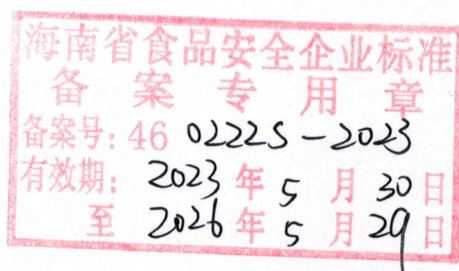 海南省食品安全企业标准
备案专用章
备案号：46 0222S-2023
有效期：2023年5月30日
至2026年5月29日